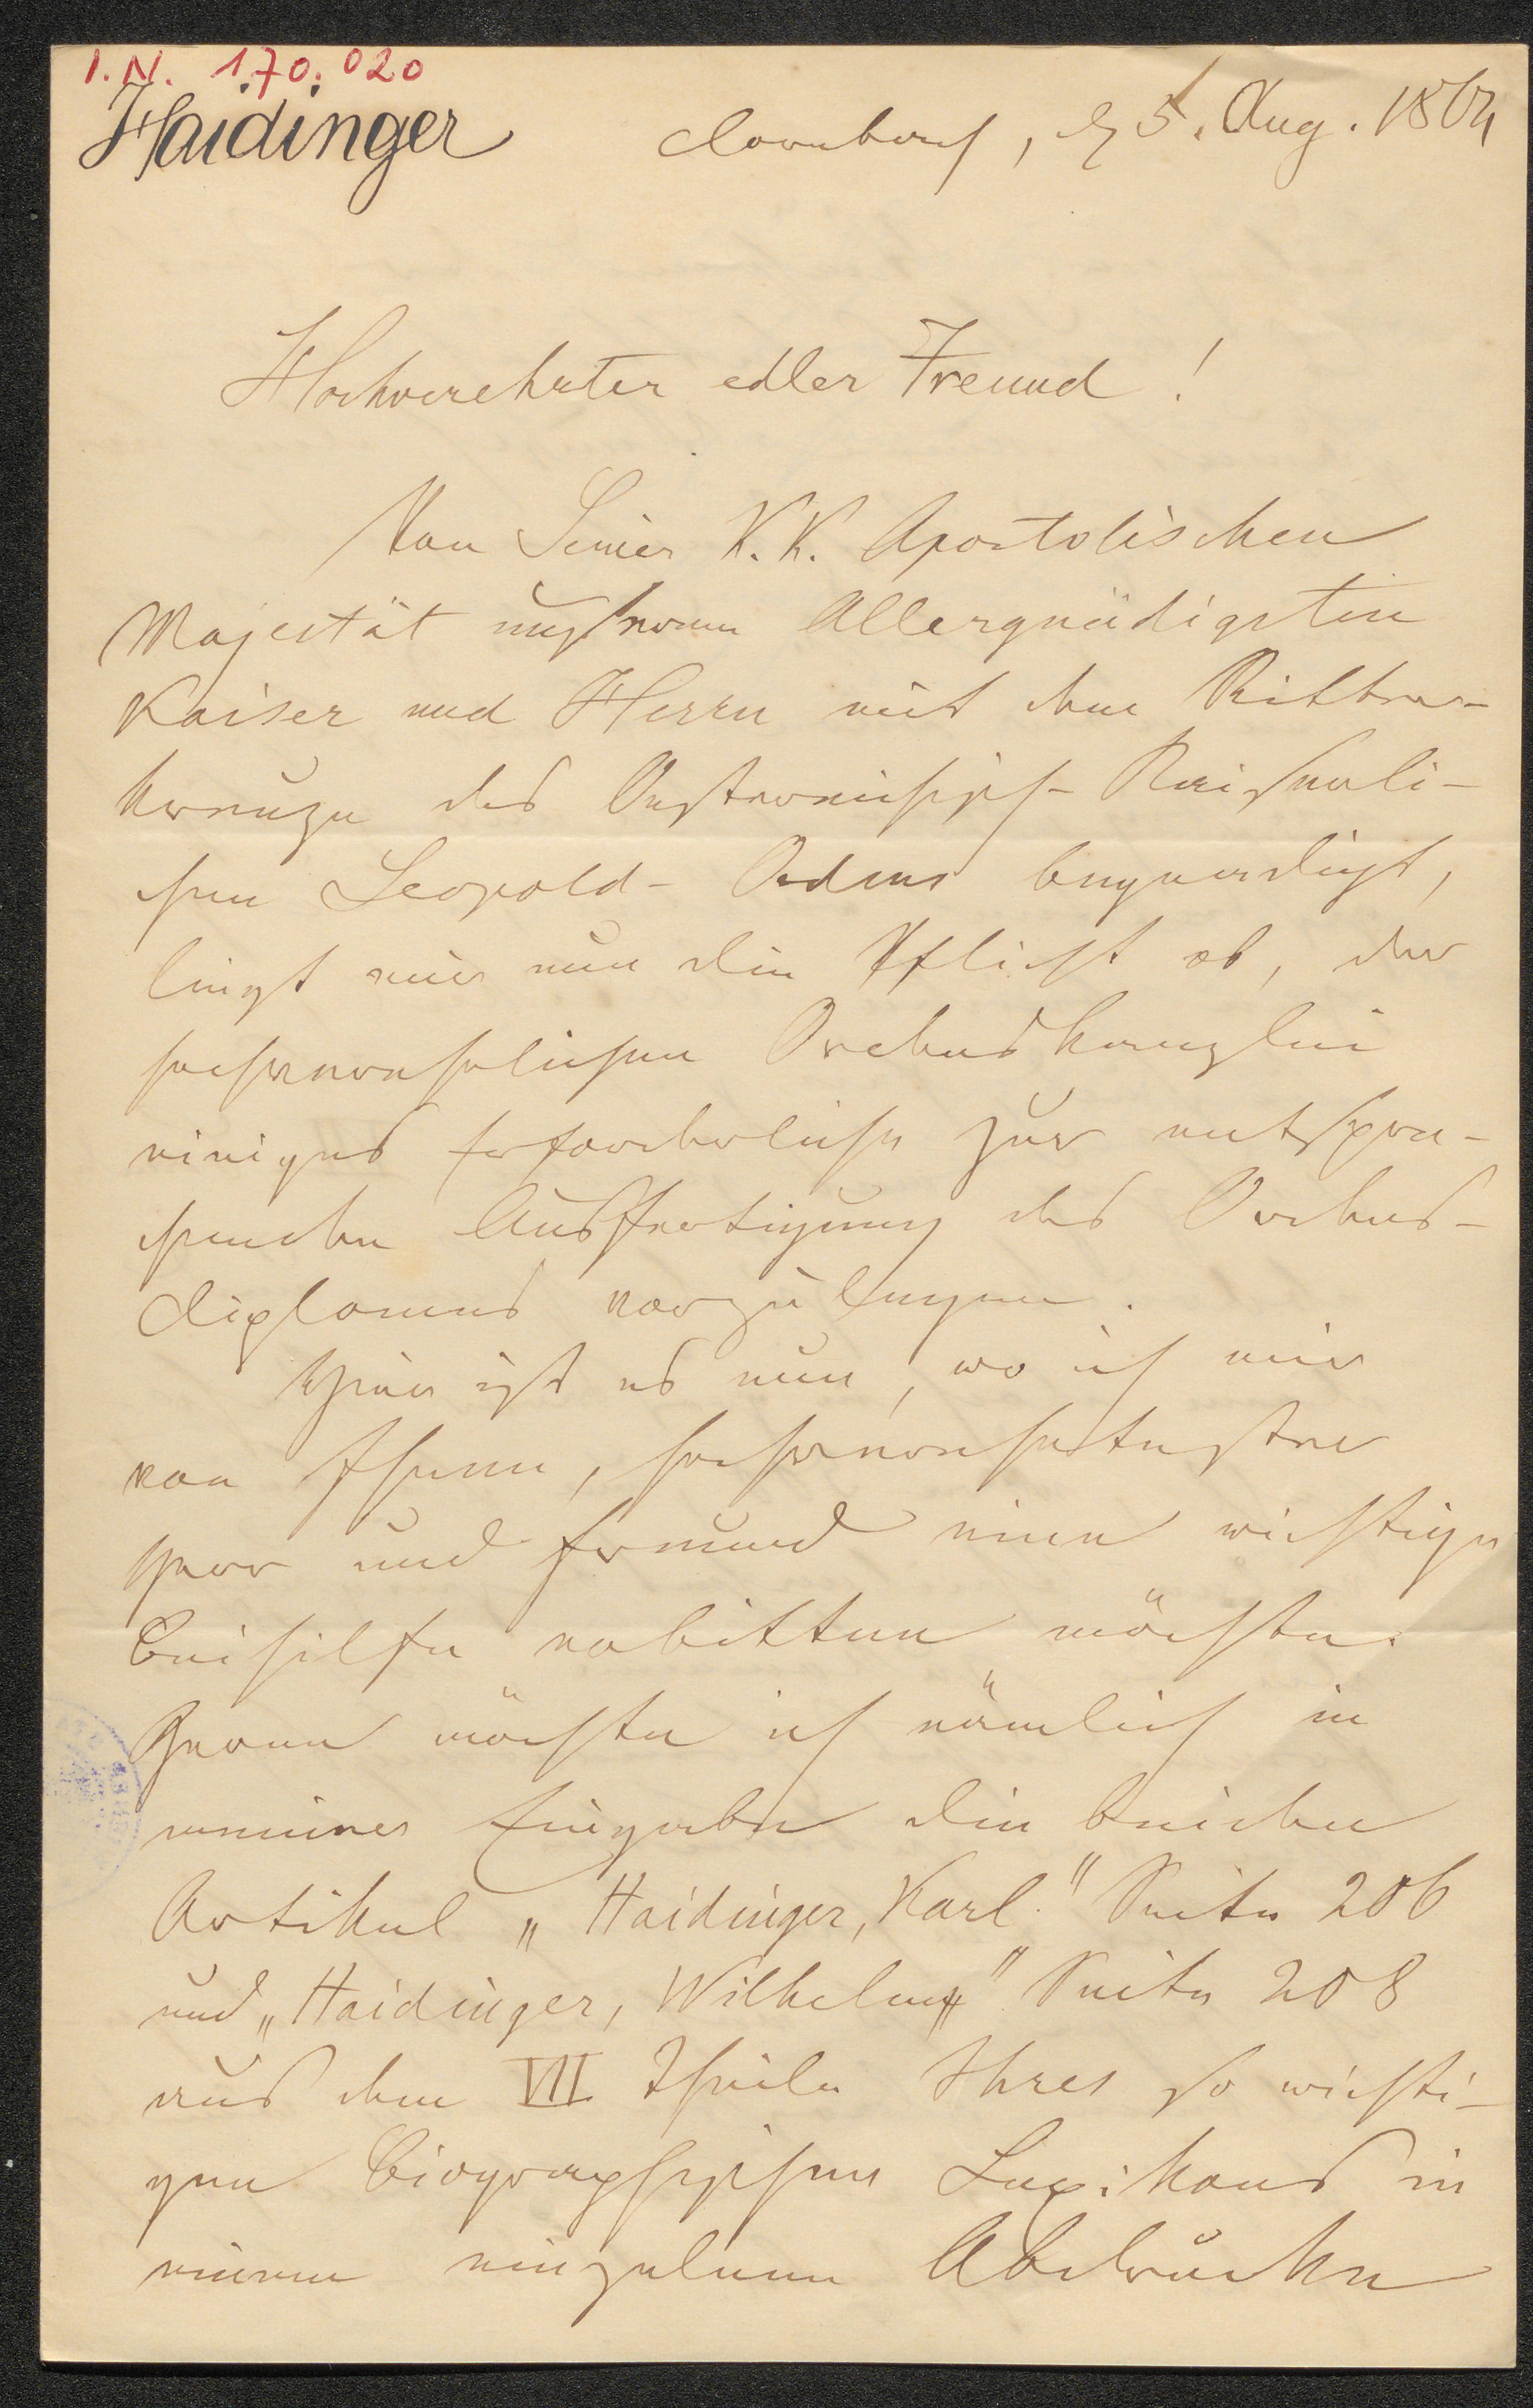 I.N. 170.020
Haidinger
Dornbach, d 5. Aug. 1864
Hochverehrter edler Freund!
Von Seiner K. K. Apostolischen
Majestät unserem Allergnädigsten
Kaiser und Herrn mit dem Ritter-
kreuze des Oesterreichisch-Kaiserli-
chen Leopold-Ordens begnadigt,
liegt mir nun die Pflicht ob, der
hochverehrlichen Ordenskanzlei
einiges Erforderliche zur entspre-
chenden Ausfertigung des Ordens-
diplomes vorzulegen.
Hier ist es nun, wo ich mir
von Ihnen, hochverehrtester
Herr und Freund eine wichtige
Beihilfe erbitten möchte.
Gerne möchte ich nämlich in
meiner Eingabe die beiden
Artikel „Haidinger, Karl" Seite 206
und „Haidinger, Wilhelm" Seite 208
aus dem VII Theile Ihres so wichti-
gen Biographischen Lexikons in
einem einzelnen Abdrucke